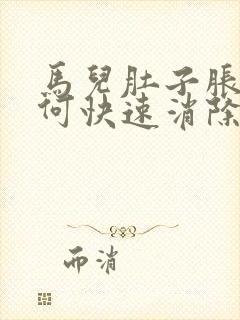 馬兒肚子脹
何快速消除
而消